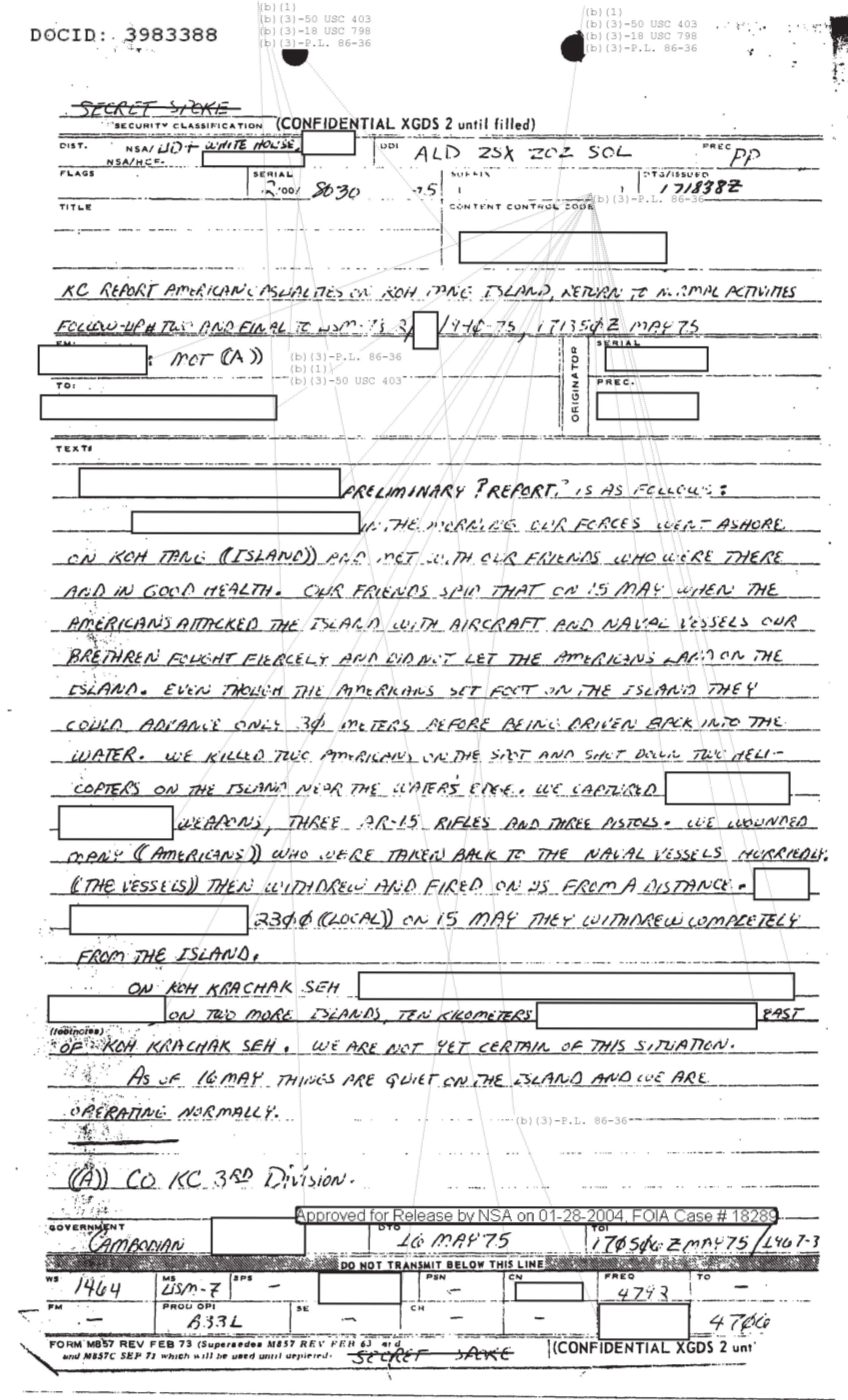 (b)(1)
(b)(3)-50 USC 403
(b)(3)-18 USC 798
(b)(3)-P.L. 86-36
(b)(1)
(b)(3)-50 USC 403
(b)(3)-18 USC 798
(b)(3)-P.L. 86-36
DOCID: 3983388
SECRET SPOKE
SECURITY CLASSIFICATION (CONFIDENTIAL XGDS 2 until filled)
DIST. NSA/ WHITE HOUSE, DDI ALD ZSX ZOZ SOL PREC PP
NSA/HCF-
FLAGS SERIAL 2/00/ 8630 -75 SUFFIX DTG/ISSUED 171838Z
(b)(3)-P.L. 86-36
TITLE CONTENT CONTROL CODE
KC REPORT AMERICAN CASUALTIES ON KOH TANG ISLAND, RETURN TO NORMAL ACTIVITIES
FOLLOW-UP# TWO AND FINAL TO USM-7S 2/ /1440-75, 171350Z MAY 75
FM: : MCT ((A)) ORIGINATOR SERIAL
(b)(3)-P.L. 86-36
(b)(1)
(b)(3)-50 USC 403
TO: PREC.
TEXT:
PRELIMINARY ?REPORT? IS AS FOLLOWS:
IN THE MORNING OUR FORCES WENT ASHORE
ON KOH TANG ((ISLAND)) AND MET WITH OUR FRIENDS WHO WERE THERE
AND IN GOOD HEALTH. OUR FRIENDS SAID THAT ON 15 MAY WHEN THE
AMERICANS ATTACKED THE ISLAND WITH AIRCRAFT AND NAVAL VESSELS OUR
BRETHREN FOUGHT FIERCELY AND DID NOT LET THE AMERICANS LAND ON THE
ISLAND. EVEN THOUGH THE AMERICANS SET FOOT ON THE ISLAND THEY
COULD ADVANCE ONLY 30 METERS BEFORE BEING DRIVEN BACK INTO THE
WATER. WE KILLED TWO AMERICANS ON THE SPOT AND SHOT DOWN TWO HELI-
COPTERS ON THE ISLAND NEAR THE WATER'S EDGE. WE CAPTURED
WEAPONS, THREE AR-15 RIFLES AND THREE PISTOLS. WE WOUNDED
MANY ((AMERICANS)) WHO WERE TAKEN BACK TO THE NAVAL VESSELS HURRIEDLY.
((THE VESSELS)) THEN WITHDREW AND FIRED ON US FROM A DISTANCE.
2300 ((LOCAL)) ON 15 MAY THEY WITHDREW COMPLETELY
FROM THE ISLAND.
ON KOH KRACHAK SEH
ON TWO MORE ISLANDS, TEN KILOMETERS EAST
(footnotes)
OF KOH KRACHAK SEH. WE ARE NOT YET CERTAIN OF THIS SITUATION.
AS OF 16 MAY THINGS ARE QUIET ON THE ISLAND AND WE ARE
OPERATING NORMALLY.
(b)(3)-P.L. 86-36
((A)) CO KC 3RD Division.
Approved for Release by NSA on 01-28-2004, FOIA Case # 18289
GOVERNMENT CAMBODIAN DTO 16 MAY 75 TOI 170506Z MAY 75/1467-3
DO NOT TRANSMIT BELOW THIS LINE
WS 1464 MS USM-7 SPS - PSN - CN FREQ 4792 TO -
FM - PROD OPI B33L SE - CH - - 4706
FORM M857 REV FEB 73 (Supersedes M857 REV FEB 63 and
and M857C SEP 71 which will be used until depleted. SECRET SPOKE (CONFIDENTIAL XGDS 2 unt